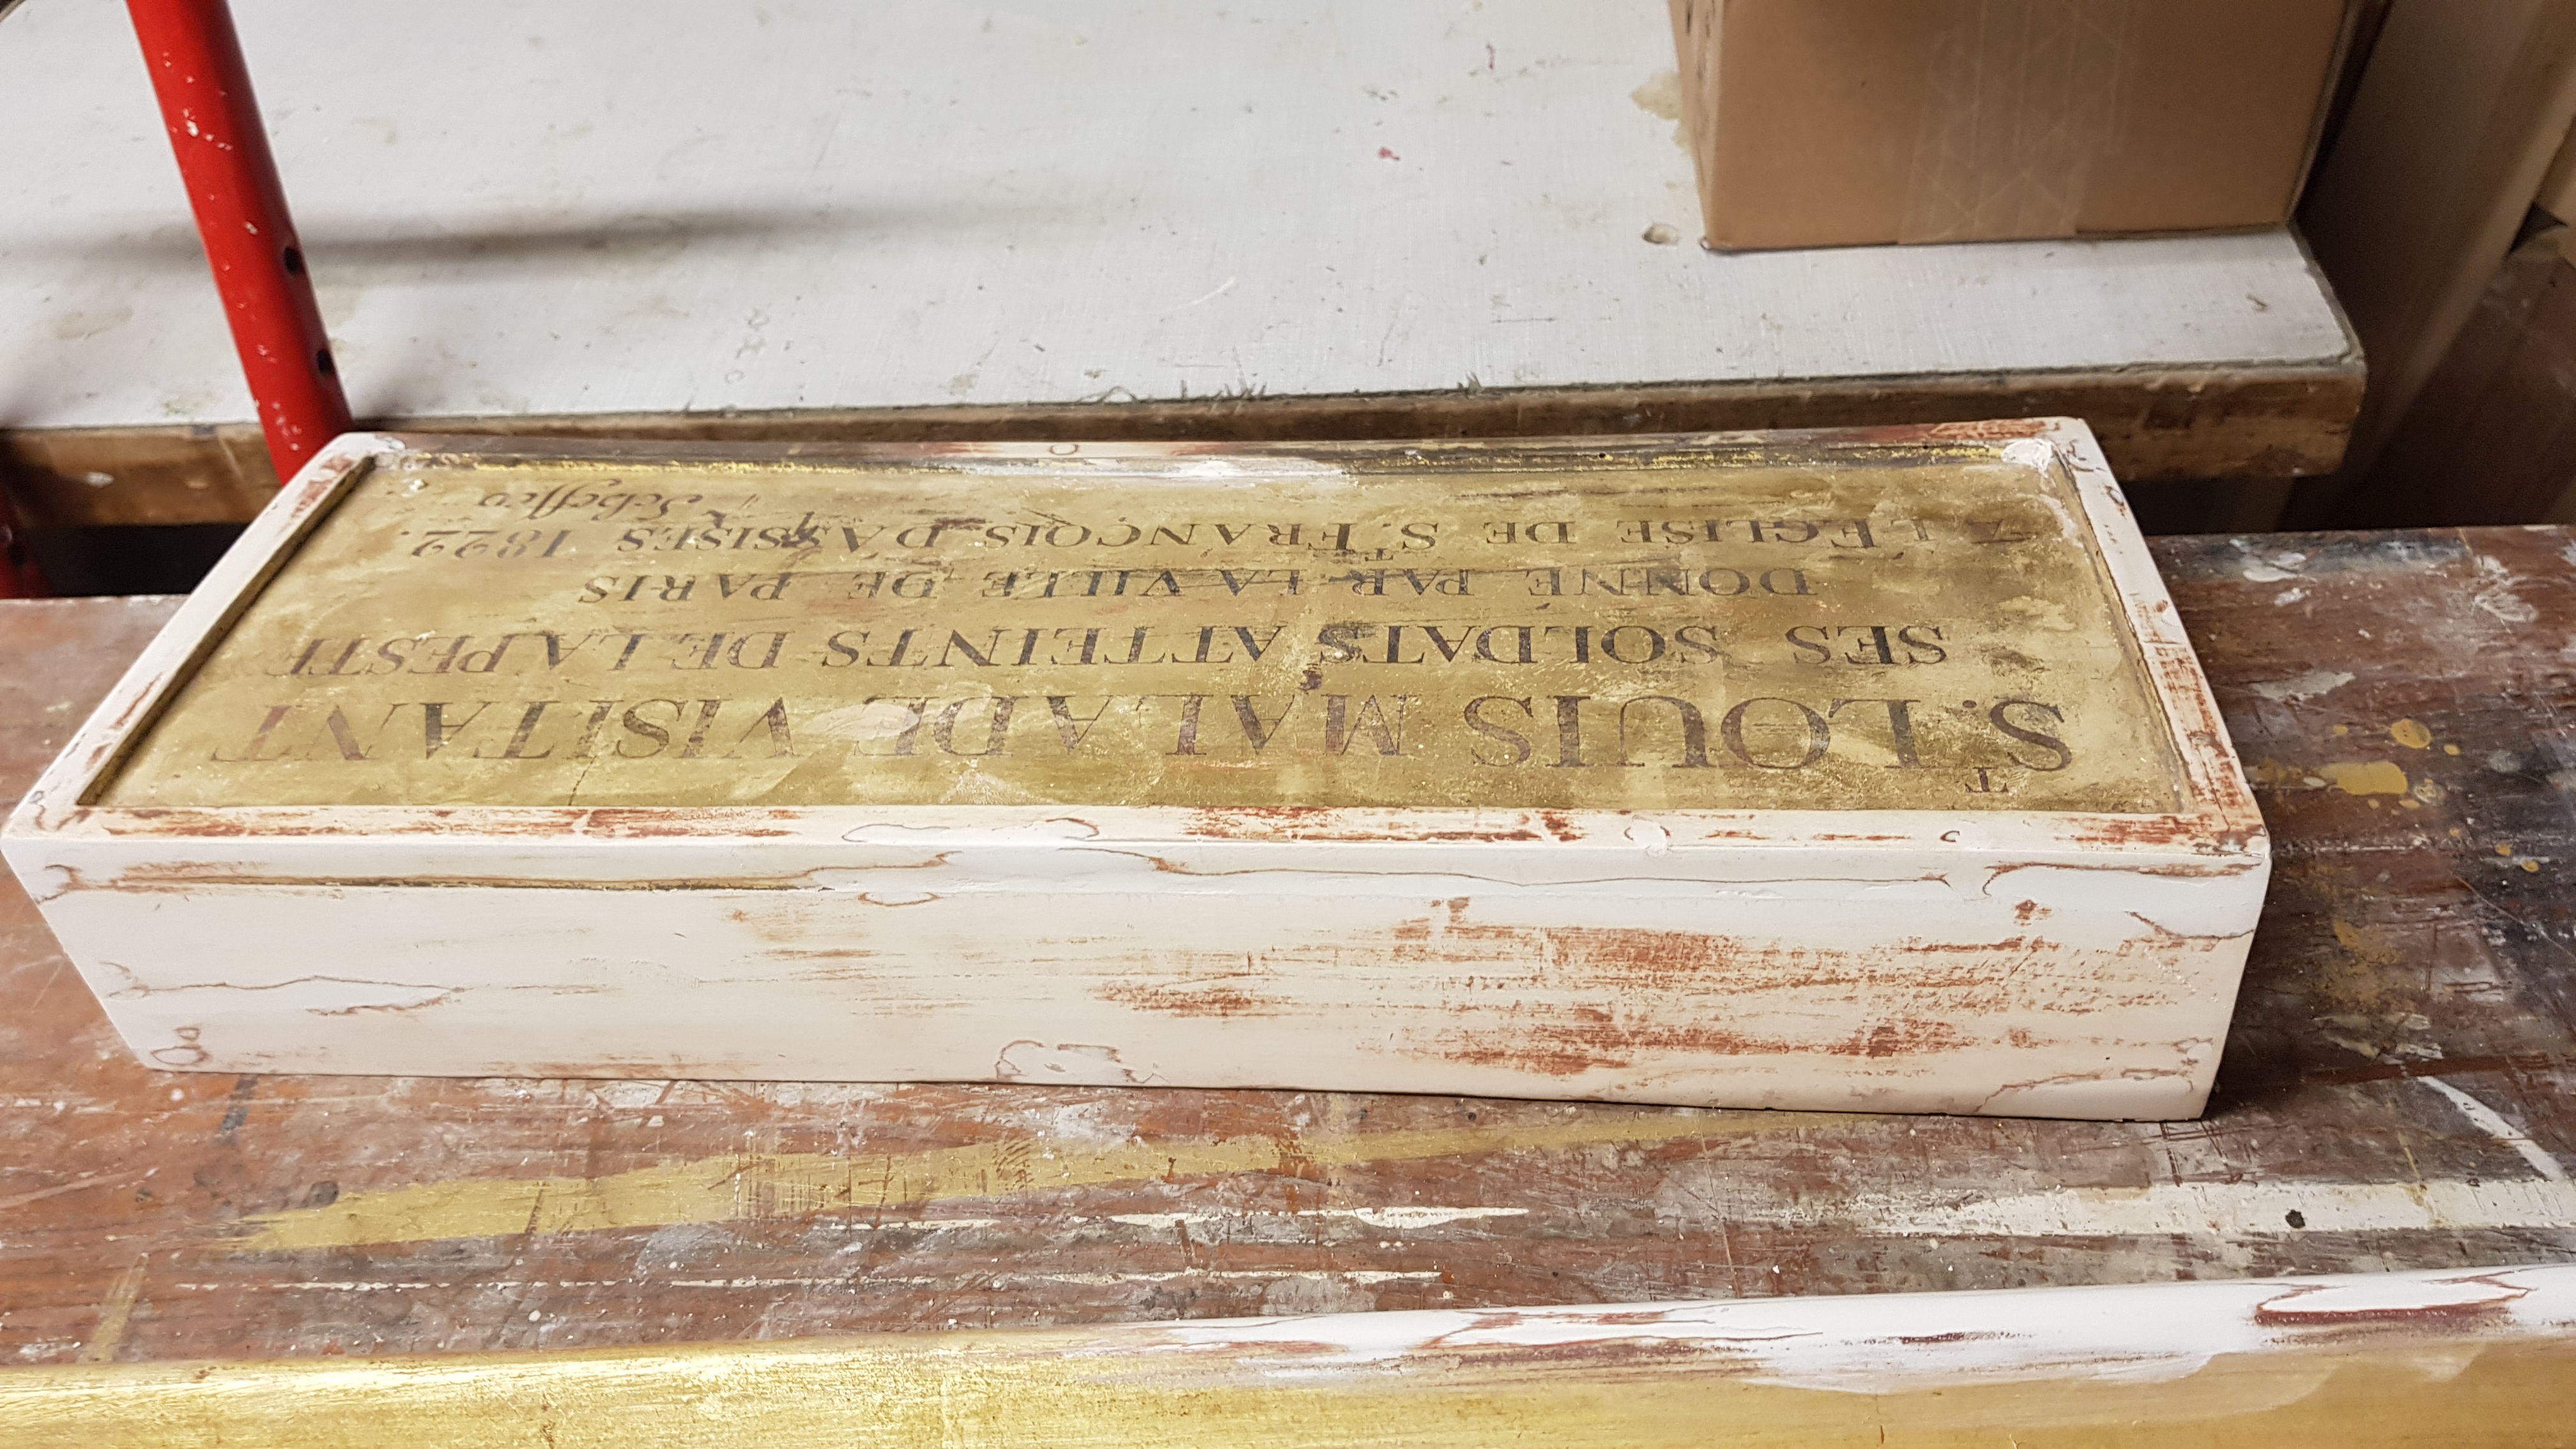 S.T LOUIS MALADE VISITANT
SES SOLDATS ATTEINTS DE LA PESTE
DONNÉ PAR LA VILLE DE PARIS
A L'EGLISE DE S.T FRANÇOIS D'ASSISES 1822.
Scheffer